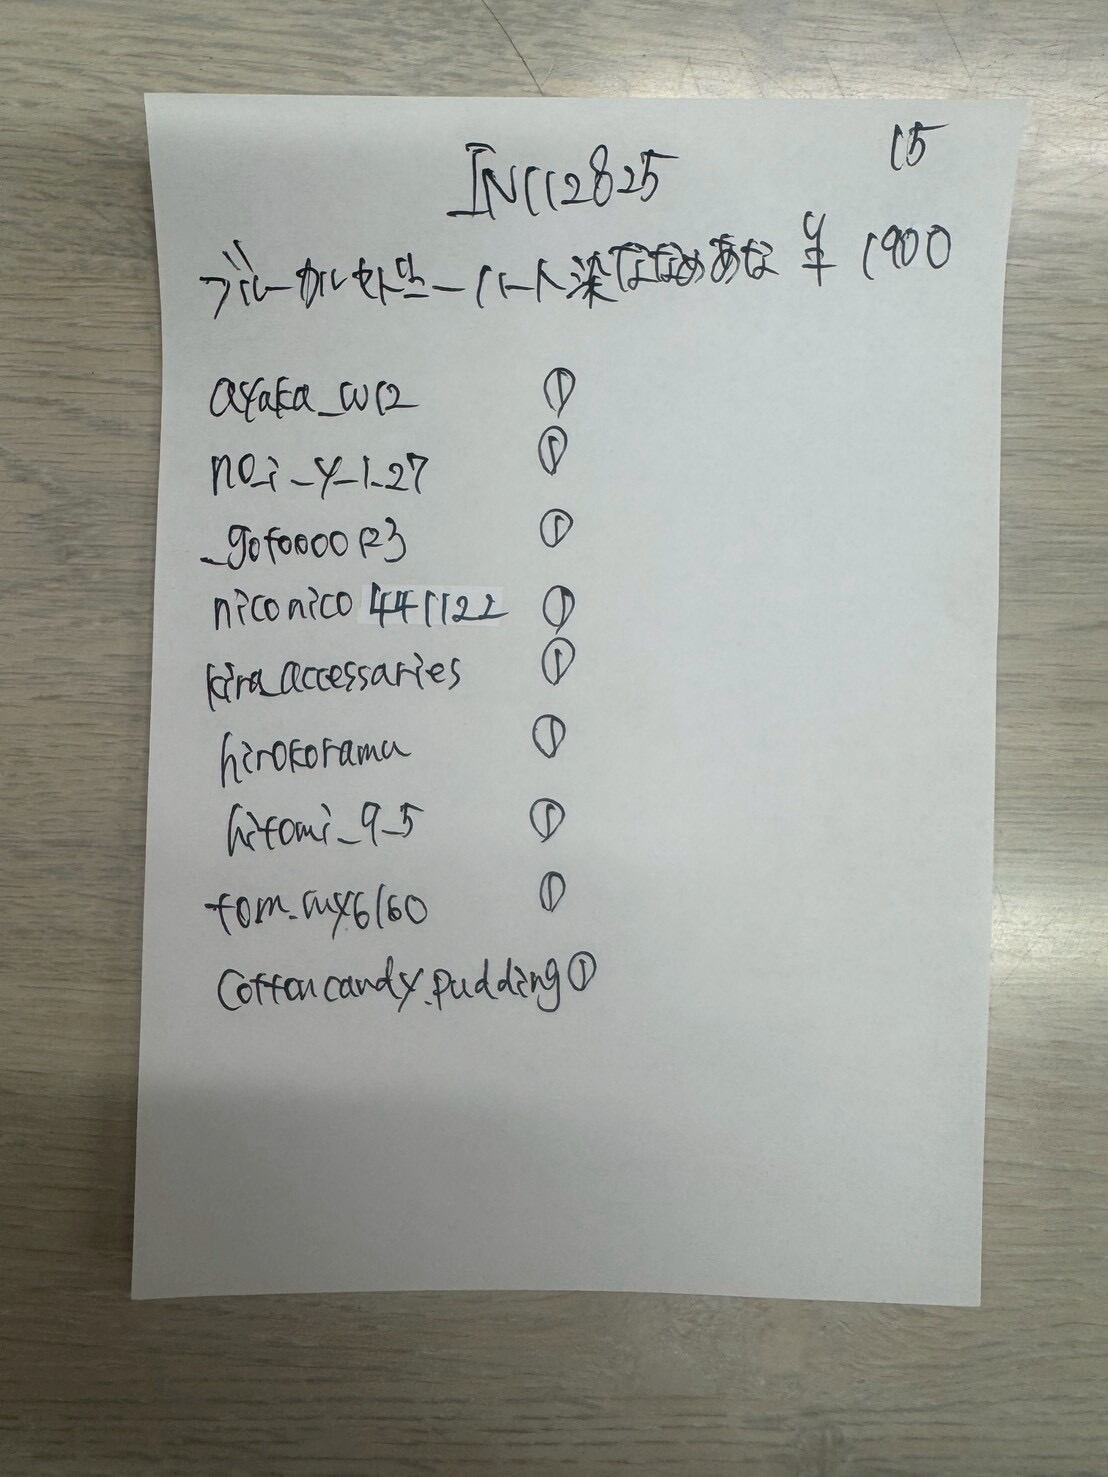 15
IN112825
ブルーカルセドニーハート染なためあな ¥1900
ayaka_w12 ①
no_i_y_1_27 ①
_gofoooo123 ①
niconico441122 ①
kira_accessaries ①
hirokorama ①
hitomi_9_5 ①
tom.my6160 ①
cottoncandy.pudding ①